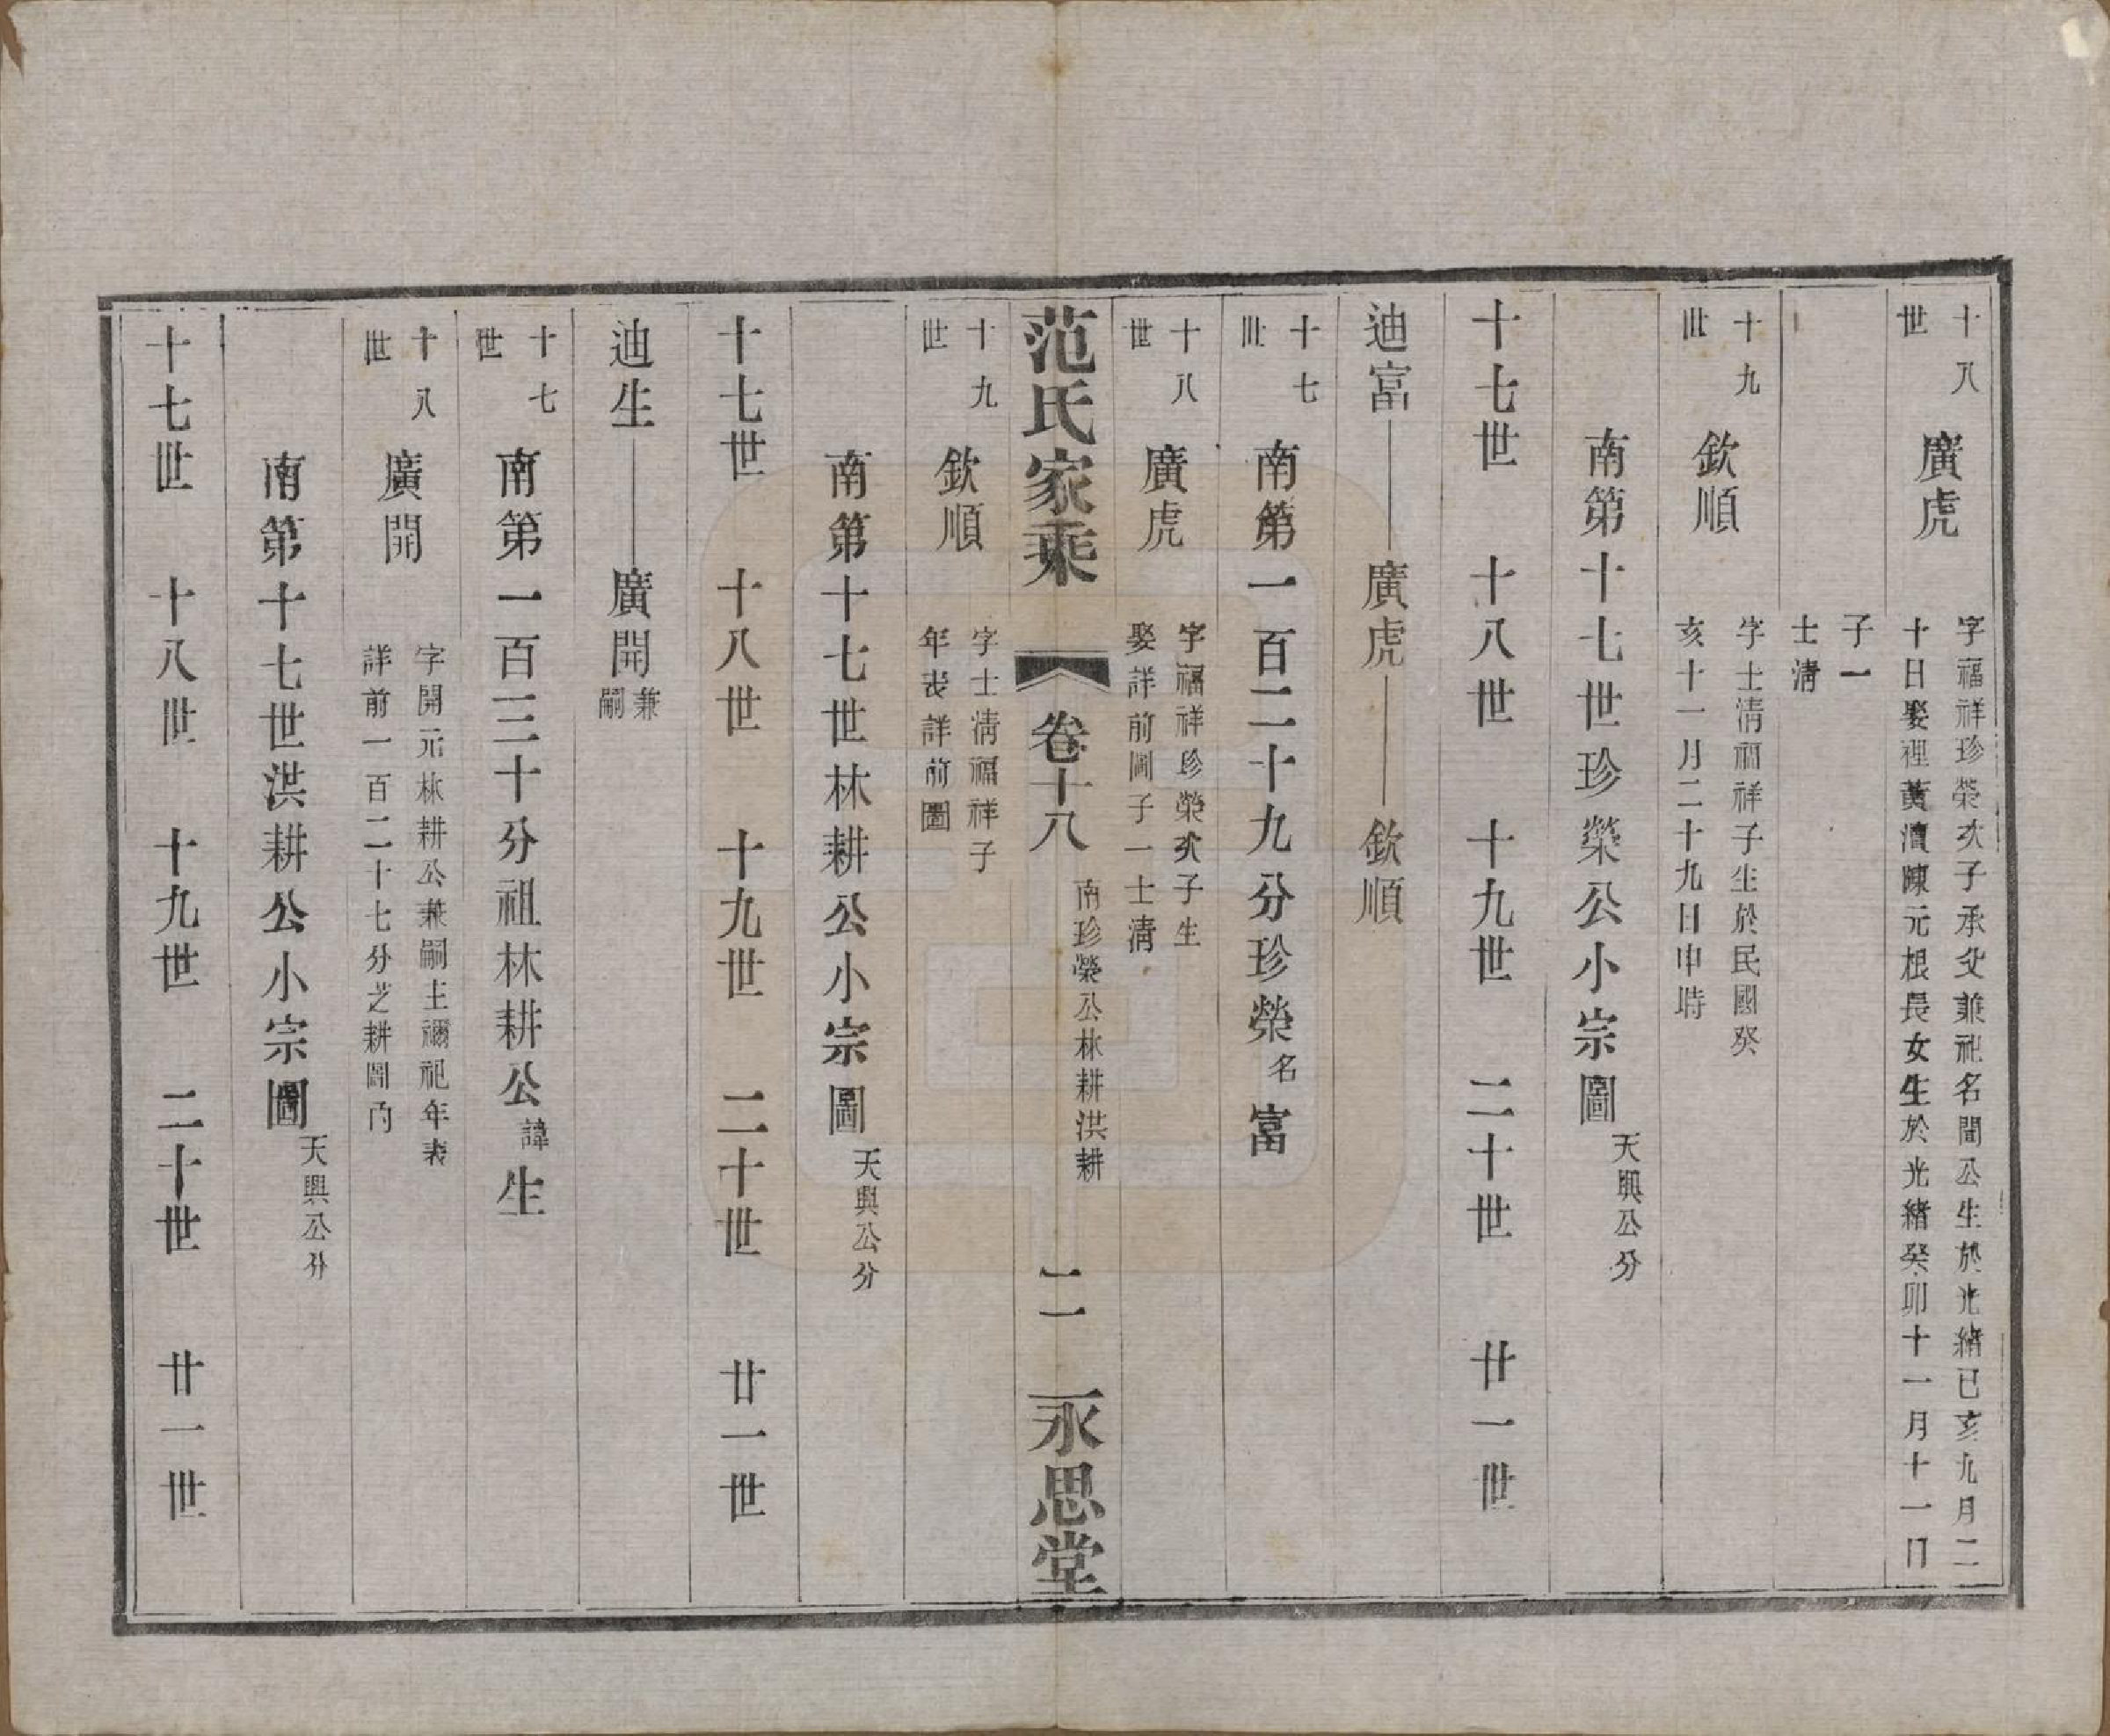 十八世　廣虎　字福祥珍榮次子承父兼祀名聞公生於光緒己亥九月二
十日娶裡黃瀆陳元根長女生於光緒癸卯十一月十一日
子一
士淸
十九世　欽順　字士淸福祥子生於民國癸
亥十一月二十九日申時
南第十七世珍榮公小宗圖天興公分
十七世　十八世　十九世　二十世　廿一世
迪富——廣虎——欽順
南第一百二十九分珍榮名富
十七世
十八世　廣虎　字福祥珍榮次子生
娶詳前圖子一士淸
范氏家乘　卷十八　南珍榮公林耕洪耕　二　永思堂
十九世　欽順　字士淸福祥子
年表詳前圖
南第十七世林耕公小宗圖天興公分
十七世　十八世　十九世　二十世　廿一世
迪生——廣開兼嗣
十七世　南第一百三十分祖林耕公諱生
十八世　廣開　字開元林耕公兼嗣主禰祀年表
詳前一百二十七分芝耕圖內
南第十七世洪耕公小宗圖天興公分
十七世　十八世　十九世　二十世　廿一世